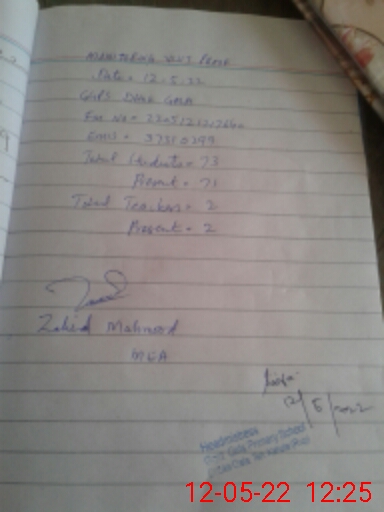 MONITORING VISIT PROOF
Date = 12.5.22
GGPS DHOK GALA
EMIS = 37310299
Total Students = 73
Present = 71
Total Teachers = 2
Present = 2
Zahid Mahmood
MEA
12/5/2022
Headmistress
Govt Girls Primary School
12-05-22 12:25